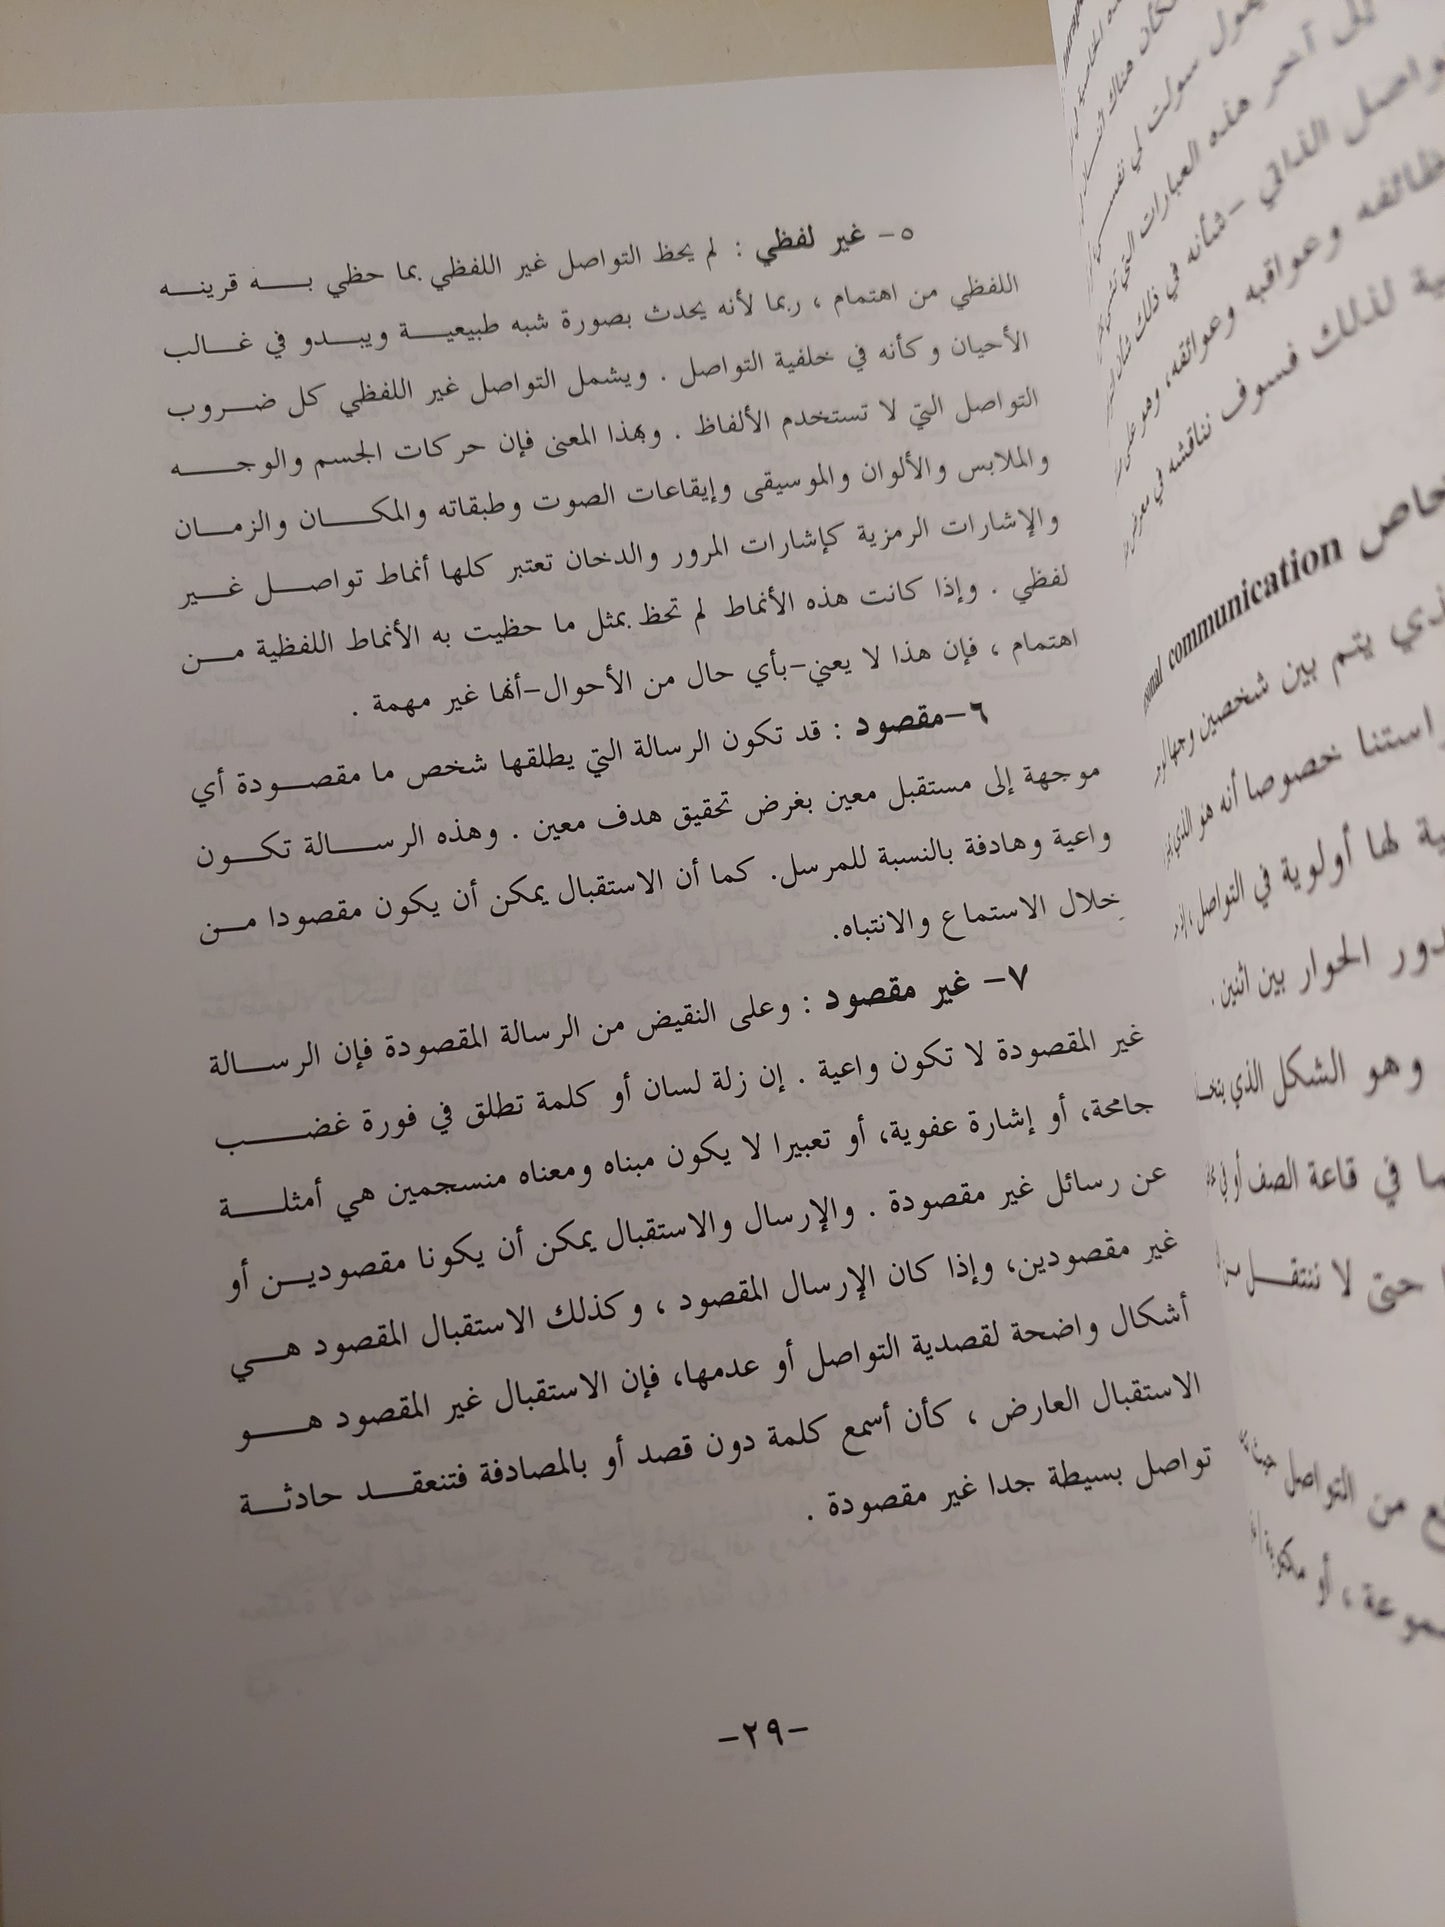 ٥- غير لفظي : لم يحظ التواصل غير اللفظي بما حظي بـــه قرينـــه
اللفظي من اهتمام ، ربما لأنه يحدث بصورة شبه طبيعيـــة ويبـــدو في غـــالب
الأحيان وكأنه في خلفية التواصل . ويشمل التواصل غير اللفظي كل ضـــروب
التواصل التي لا تستخدم الألفاظ . وبهذا المعنى فإن حركات الجسم والوجـــه
والملابس والألوان والموسيقى وإيقاعات الصوت وطبقاته والمكـــان والزمـــان
والإشارات الرمزية كإشارات المرور والدخان تعتبر كلها أنماط تواصـــل غـــير
لفظي . وإذا كانت هذه الأنماط لم تحظ بمثل ما حظيت به الأنماط اللفظية مـــن
اهتمام ، فإن هذا لا يعني-بأي حال من الأحوال-أنها غير مهمة .
٦-مقصود : قد تكون الرسالة التي يطلقها شخص ما مقصـــودة أي
موجهة إلى مستقبل معين بغرض تحقيق هدف معين . وهذه الرســـالة تكـــون
واعية وهادفة بالنسبة للمرسل. كما أن الاستقبال يمكن أن يكون مقصودا مـــن
خلال الاستماع والانتباه.
٧- غير مقصود : وعلى النقيض من الرسالة المقصودة فإن الرســـالة
غير المقصودة لا تكون واعية . إن زلة لسان أو كلمة تطلق في فورة غضـــب
جامحة، أو إشارة عفوية، أو تعبيرا لا يكون مبناه ومعناه منسجمين هي أمثلـــة
عن رسائل غير مقصودة . والإرسال والاستقبال يمكن أن يكونا مقصوديـــن أو
غير مقصودين، وإذا كان الإرسال المقصود ، وكذلك الاستقبال المقصود هـــي
أشكال واضحة لقصدية التواصل أو عدمها، فإن الاستقبال غير المقصود هـــو
الاستقبال العارض ، كأن أسمع كلمة دون قصد أو بالمصادفة فتنعقـــد حادثـــة
تواصل بسيطة جدا غير مقصودة .
-٢٩-
آخر هذه العبارات التي
الذاتي -شأنه في ذلك شأن
وعواقبه وعوائقه، وهو على
لذلك فسوف نناقشه في
communication
يتم بين شخصين وجها
خصوصا أنه هو الذي
لها أولوية في التواصل
دور الحوار بين اثنين .
وهو الشكل الذي
في قاعة الصف أو في
حتى لا ننتقل
من التواصل